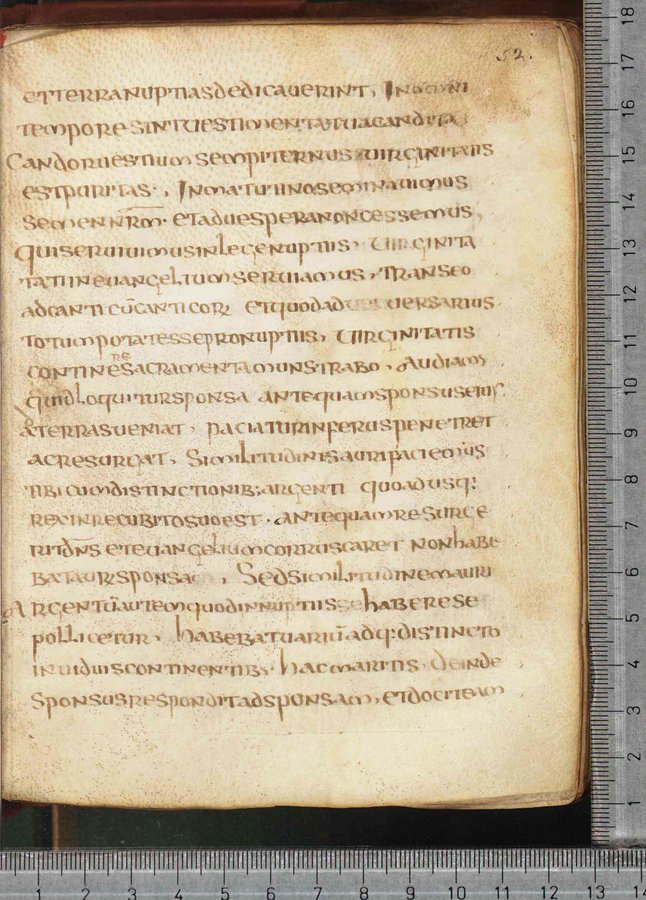 52.
etterranuptiasdedicauerint, Inomni
temporesintuestimentatuacandida
Candoruestiumsempiternus uirginitatis
estpuritas., Inmatutinoseminauimus
semennr̄m. etaduesperanoncessemus,
quiseruiuimusinlegenuptiis, uirginita
tatiineuangeliumseruiamus, Transeo
adcanticūcanticor; etquodad uersarius
totumputatessepronuptiis, uirginitatis
contineresacramentamunstrabo, Audiam
quidloquitursponsa antequamsponsuseius
adterrasueniat, paciaturinferuspenetret
acresurgat, Similitudinisaurifaciem̄us
tibicumdistinctionib; argenti quoadusq;
rexinrecubitosuoest. antequamresurge
ritdn̄s eteuangeliumcorruscaret nonhabe
bataursponsa , Sedsimilitudinemauri
Argentūautemquodinnuptiis haberese
pollicetur, habebatuariūadq; distincto
inuiduiscontinentib, hacmaritis. deinde
Sponsusresponditadsponsam, etdocteam